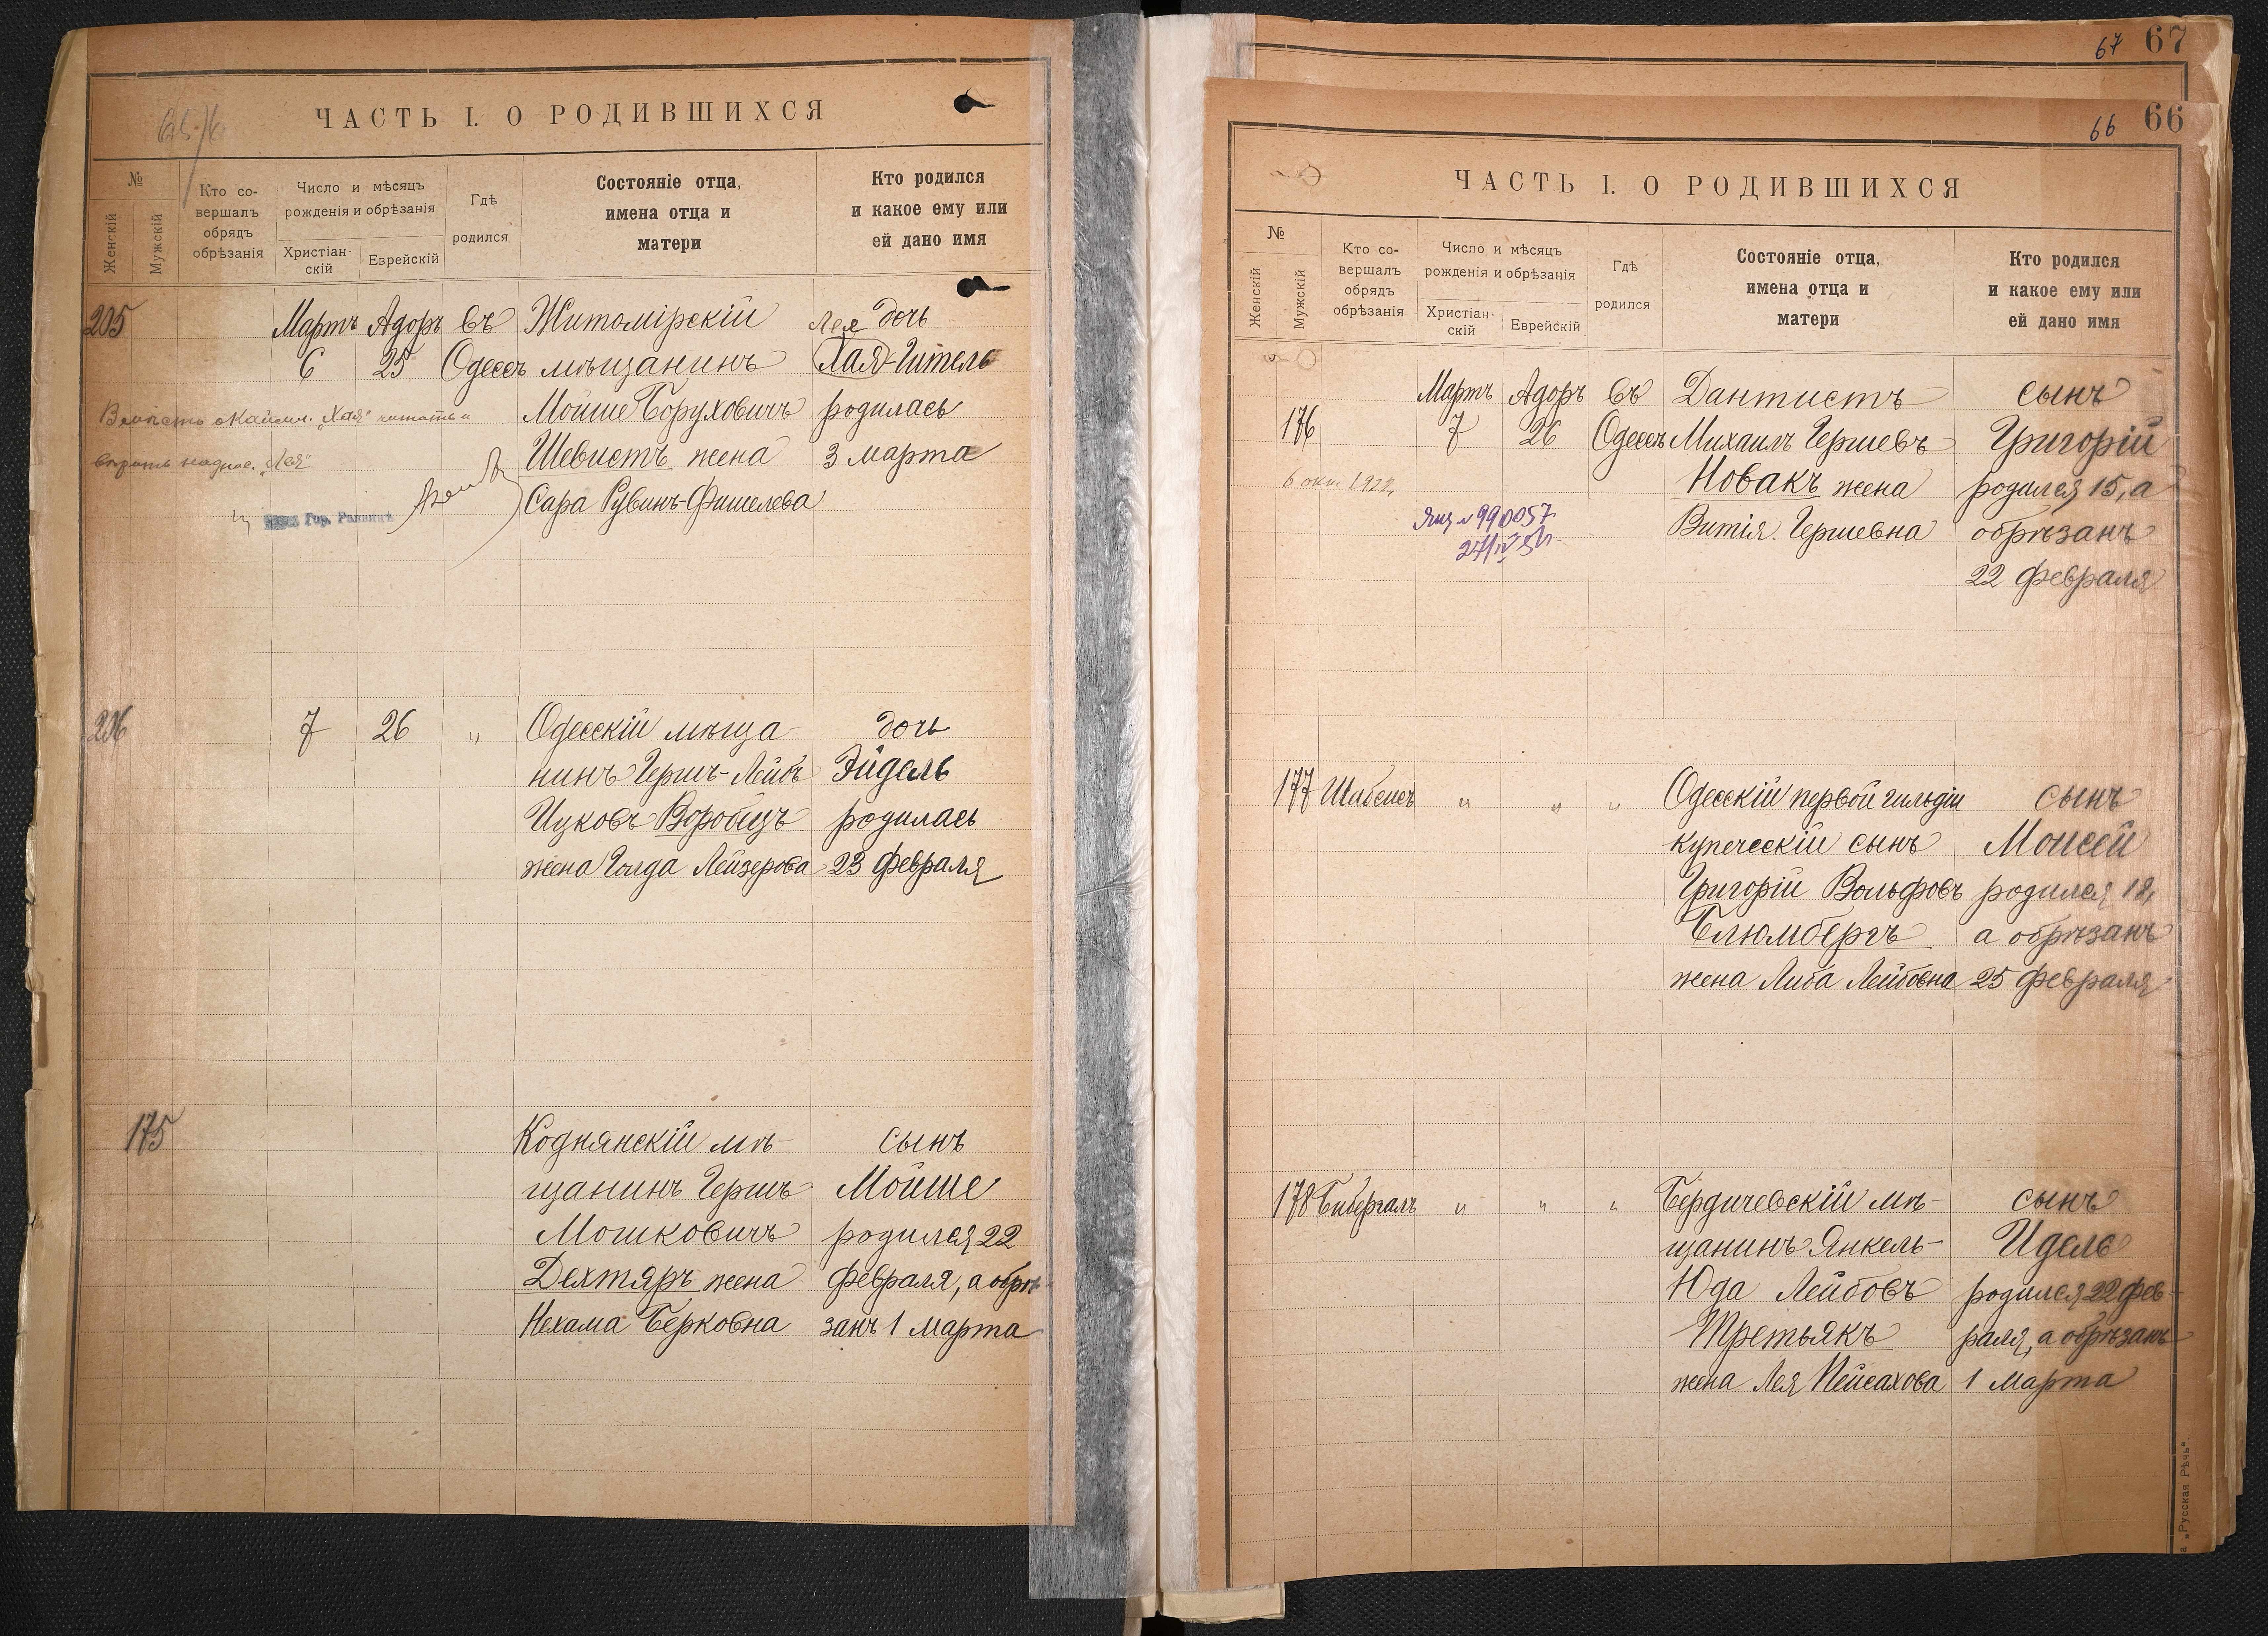 ЧАСТЬ I. О РОДИВШИХСЯ
№
Женскій
Мужскій
Кто со-
вершалъ
обрядъ
обрѣзанія
Число и мѣсяцъ
рожденія и обрѣзанія
Христіан-
скій
Еврейскій
Гдѣ
родился
Состояніе отца,
имена отца и
матери
Кто родился
и какое ему или
ей дано имя
205 Мартъ Адоръ въ Житомірскій Лея дочь
6 25 Одессѣ мѣщанинъ Хая-Гитель
Мойше Боруховичъ родилась
Шевистъ жена 3 марта
Сара Рувинъ-Фишелева
Вмѣсто „Хая" читать и
„Лея"
Гор. Раввинъ
206 7 26 „ Одесскій мѣща- дочь
нинъ Гершъ-Лейбъ Эйдель
Ицковъ Воробецъ родилась
жена Голда Лейзерова 23 февраля
175 Коднянскій мѣ- сынъ
щанинъ Гершъ Мойше
Мошковичъ родился 22
Дехтяръ жена февраля, а обрѣ-
Нехама Берковна занъ 1 марта
67 67
66 66
ЧАСТЬ I. О РОДИВШИХСЯ
№
Женскій
Мужскій
Кто со-
вершалъ
обрядъ
обрѣзанія
Число и мѣсяцъ
рожденія и обрѣзанія
Христіан-
скій
Еврейскій
Гдѣ
родился
Состояніе отца,
имена отца и
матери
Кто родился
и какое ему или
ей дано имя
Мартъ Адоръ въ Дантистъ сынъ
176 7 26 Одессѣ Михаилъ Гершевъ Григорій
Новакъ жена родился 15, а
Витія Гершевна обрѣзанъ
22 февраля
6 окт. 1922
№ 990057
177 Шабсисъ „ „ „ Одесскій первой гильдіи сынъ
купеческій сынъ Моисей
Григорій Вольфовъ родился 18,
Блюмбергъ а обрѣзанъ
жена Либа Лейбовна 25 февраля
178 Бибергалъ „ „ „ Бердичевскій мѣ- сынъ
щанинъ Янкель- Идель
Юда Лейбовъ родился 22 фев-
Третьякъ раля, а обрѣзанъ
жена Лея Пейсахова 1 марта
„Русская Рѣчь".